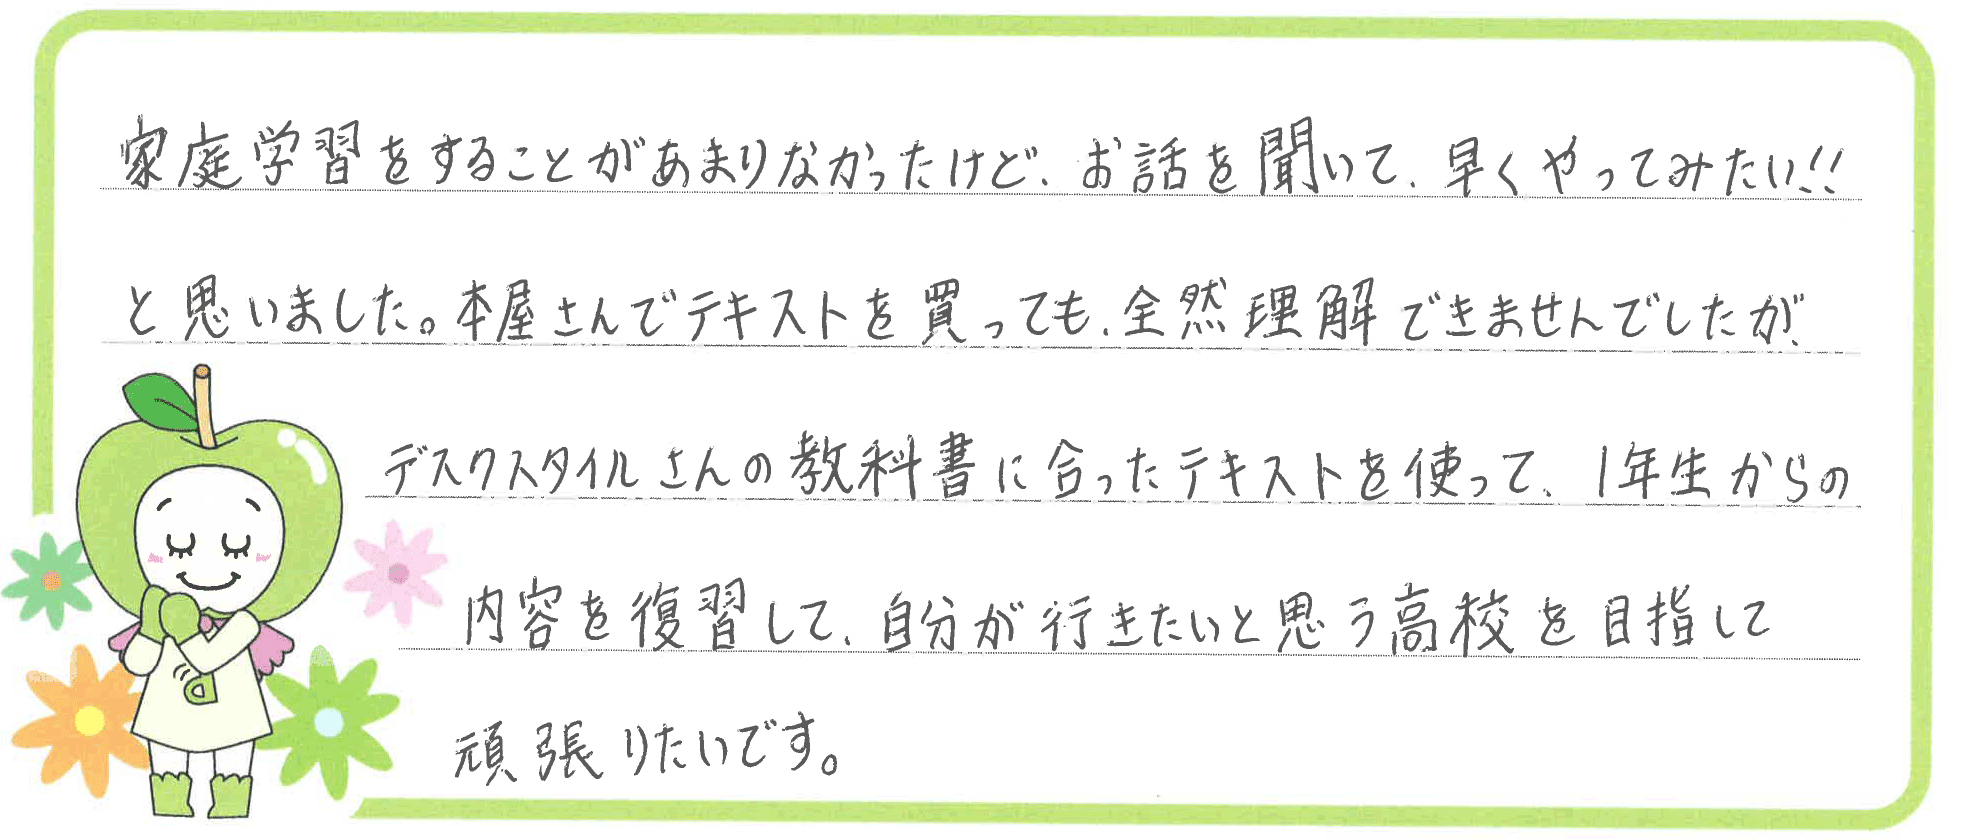 家庭学習をすることがあまりなかったけど、お話を聞いて、早くやってみたい!!
と思いました。本屋さんでテキストを買っても、全然理解できませんでしたが、
デスクスタイルさんの教科書に合ったテキストを使って、1年生からの
内容を復習して、自分が行きたいと思う高校を目指して
頑張りたいです。